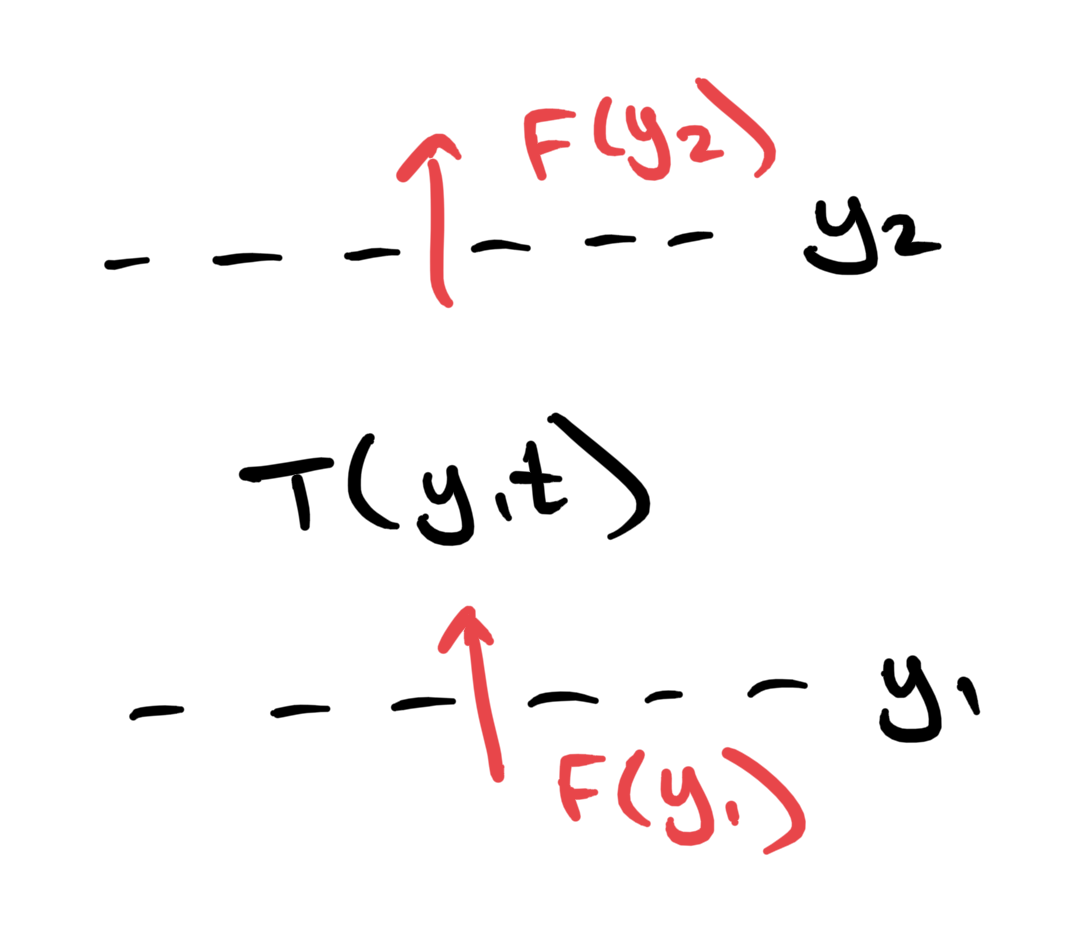 F(y₂)
y₂
T(y,t)
y₁
F(y₁)